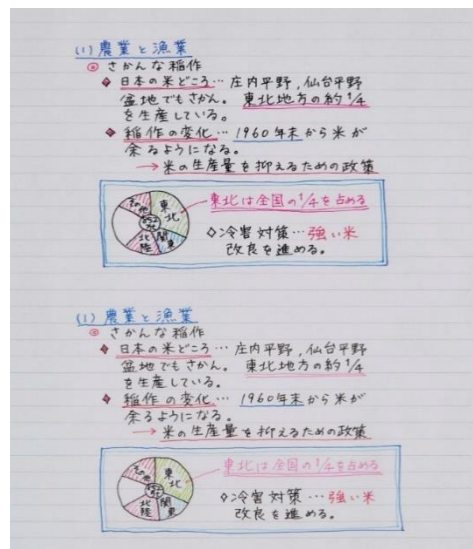 (1) 農業と漁業
◎ さかんな稲作
◆ 日本の米どころ… 庄内平野, 仙台平野
盆地でもさかん。 東北地方の約1/4
を生産している。
◆ 稲作の変化… 1960年末から米が
余るようになる。
→ 米の生産量を抑えるための政策
その他
東北
関東
北陸
東北は全国の1/4を占める
◇冷害対策…強い米
改良を進める。
(1) 農業と漁業
◎ さかんな稲作
◆ 日本の米どころ… 庄内平野, 仙台平野
盆地でもさかん。 東北地方の約1/4
を生産している。
◆ 稲作の変化… 1960年末から米が
余るようになる。
→ 米の生産量を抑えるための政策
その他
東北
関東
北陸
東北は全国の1/4を占める
◇冷害対策…強い米
改良を進める。